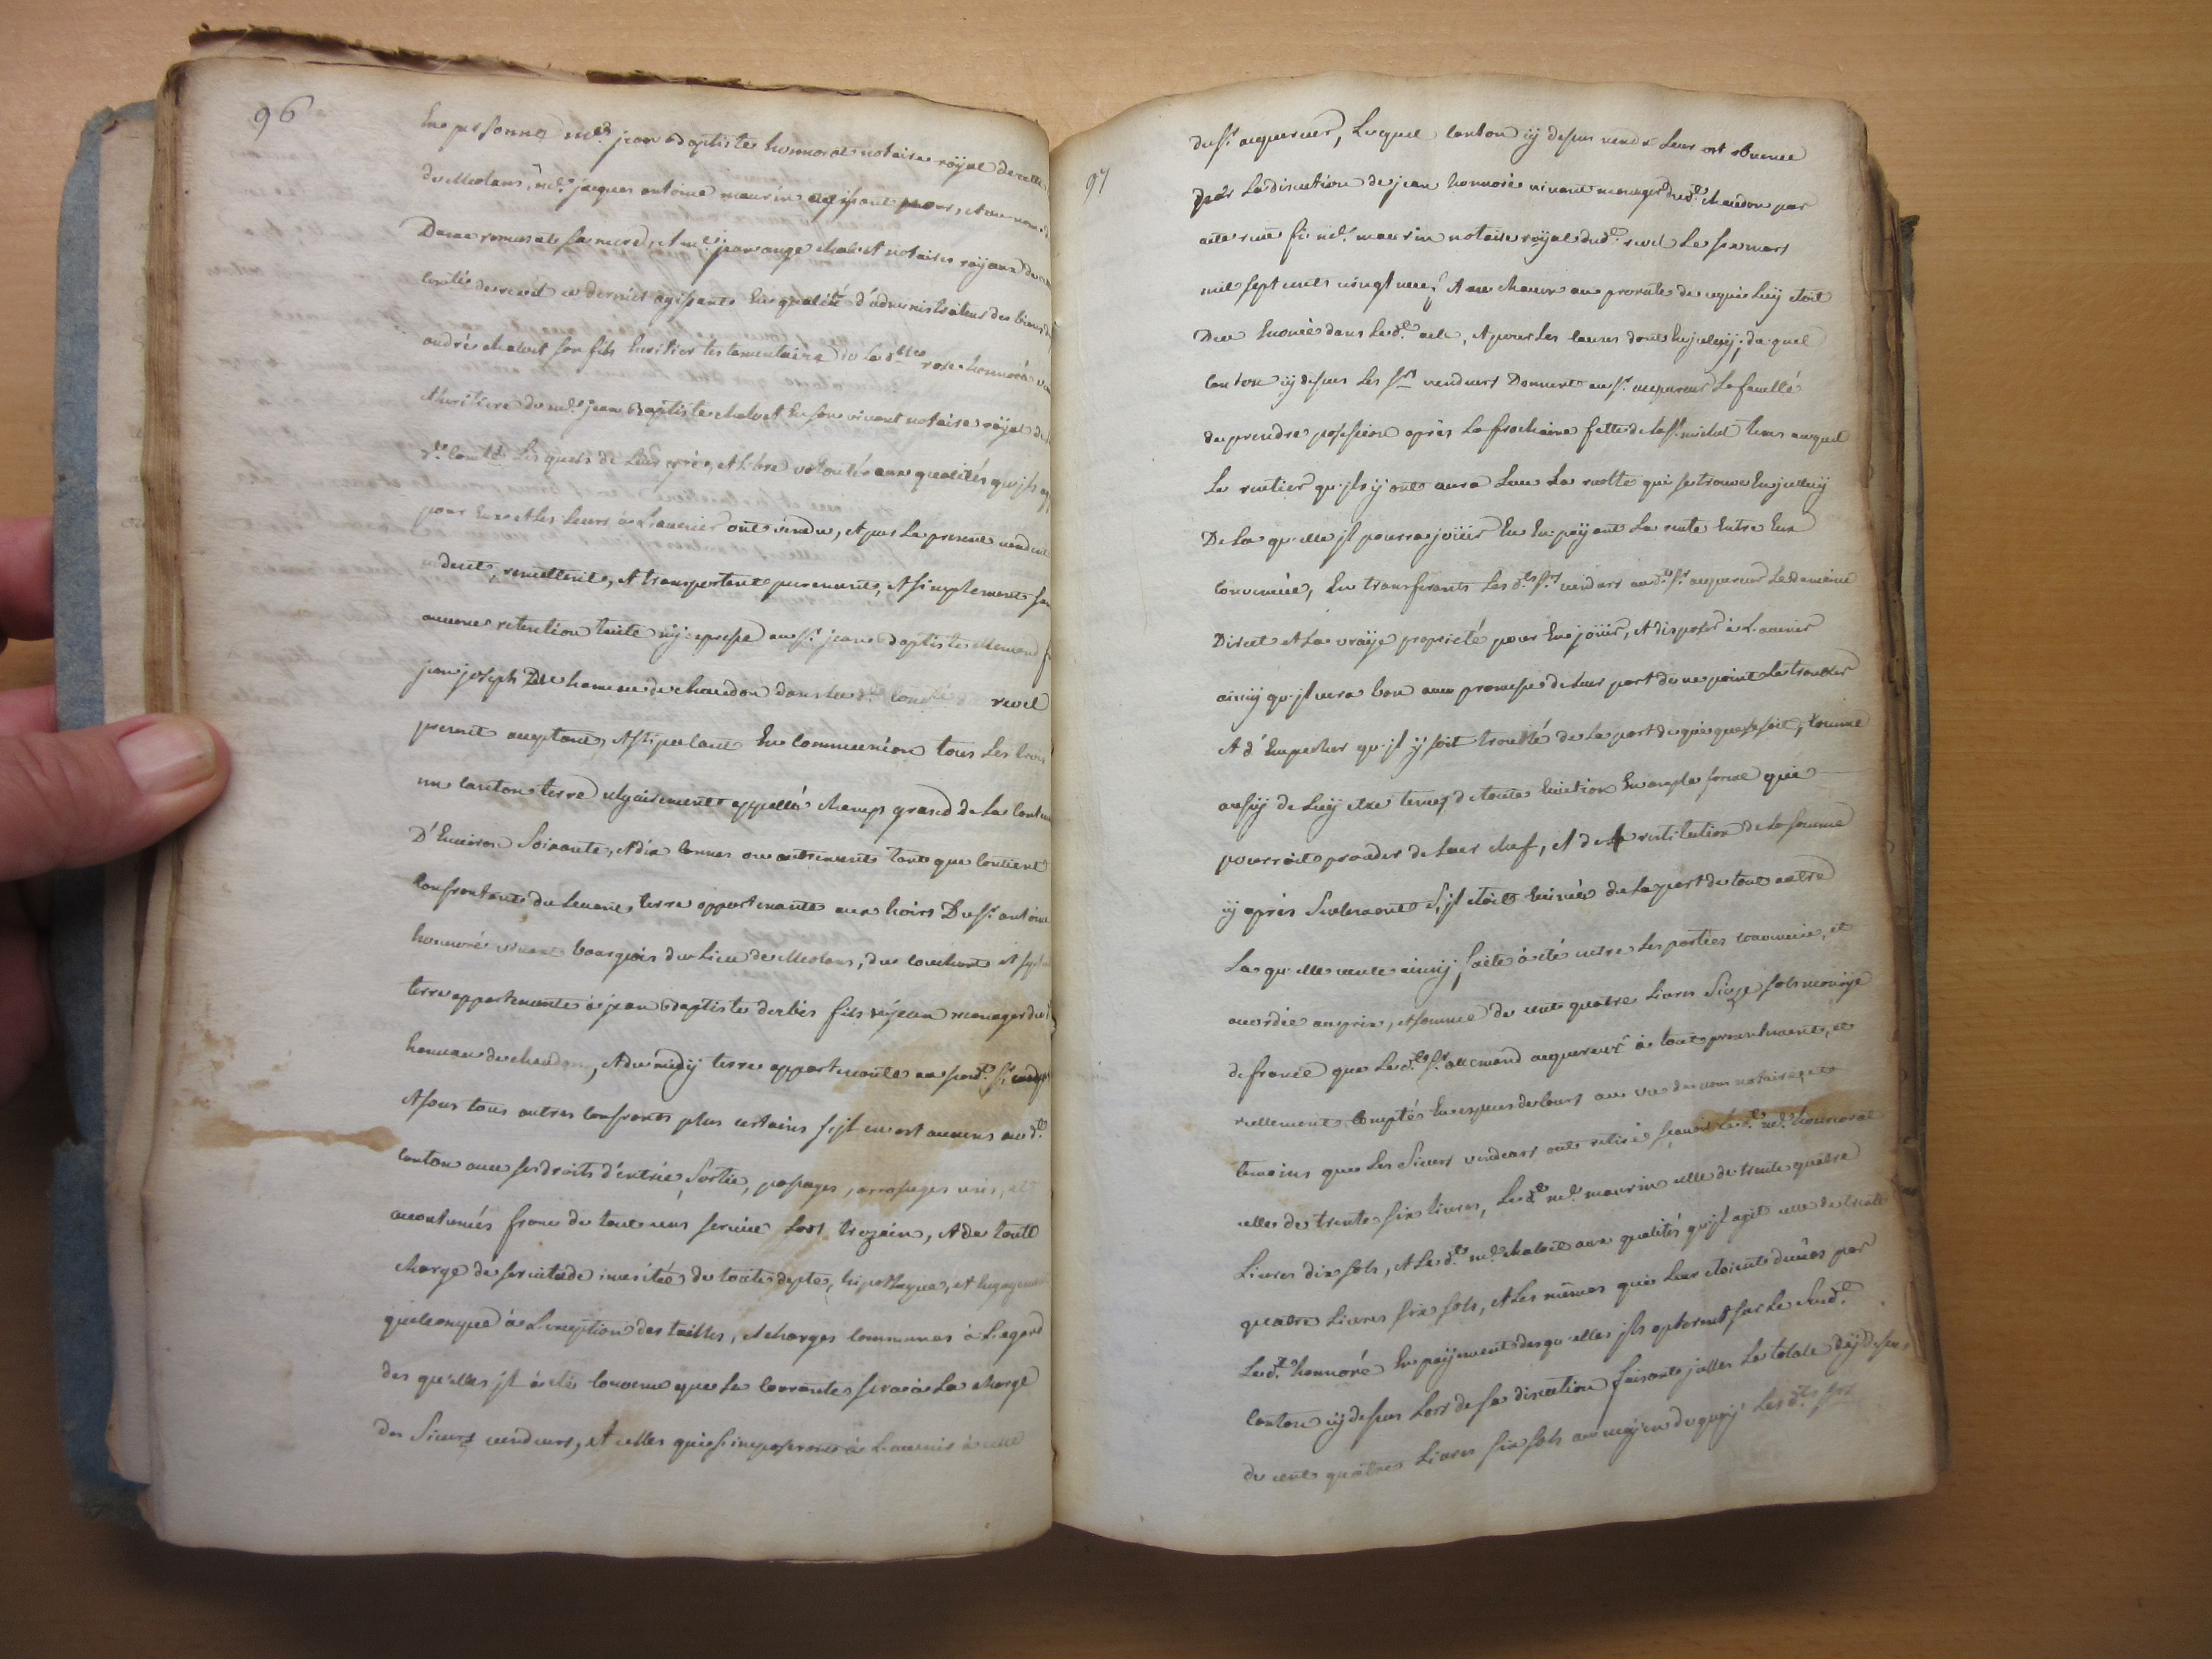 96
En personne me. jean baptiste honnorat notaire röyal de cette
de Meolans, me. jacques antoine maurin agissant pour, et au nom
Dame romusat sa mere, et me. jean ange chalvet notaires roÿaux de
comté de revel ce dernier agissant En qualité d'administrateur des biens d
andré chalvet son fils heritier testamentaire de la dlle rose honnoré
et heritiere de me. jean baptiste chalvet En son vivant notaire röyal de
d. comté Lesquels de Leur gré, et Libre volonté aux qualités qu'jls
pour Eux et Les Leurs à L'auenir ont vendu, et par Le present vendent
cedent, remettent, et transportent purement, et simplement
aucune retention tacite nÿ expresse au sr. jean baptiste Allemand
jean joseph Du hameau de chaudon dans la d. comté de revel
present acceptant, et stipulant En Communion tous Les trois
un canton terre vulgairement appellé champ grand de La
D'Environ Soixante, et dix cannes ou autrement tant que contient
Confrontant du Leuant terre appartenante aux hoirs Du sr. antoine
honnoré vivant bourgeois du Lieu de Meolans, du couchant et
terre appartenante à jean baptiste derbès fils à jean menager du
hameau de chaudon, et du midÿ terre appartenante au
et sous tous autres confronts plus certains s'jl en ont aucuns aud.
canton avec ses droits d'entrée, Sortie, passages, arrosages
accoutumés franc de tout cens service Lods trezain, et de toute
charge de servitude inusitée de toute depte, hipotheque, et Engagement
quelconque à L'exeption des tailles, et charges communes à L'egard
des quelles jl à été convenu que La Courrante sera à La charge
des Sieurs vendeurs, et celles qui s'imposeront à L'auenir à celle
97
du sr. acquereur, Lequel canton cÿ dessus vendu Leur est obvenu
par La discution de jean honnoré vivant menager dud. chaudon par
acte receu fû me. maurin notaire röyal dud. revel Le six mars
mil sept cents vingt neuf
Due Enoncée dans Led. acte, et pour Les causes dont En jceluÿ; du quel
canton cÿ dessus Les srs vendeurs Donnent au sr. acquereur La faculté
de prendre possession après La prochaine fette de la st. michel tems auquel
Le rentier qu'jls ÿ ont aura Leué La recolte qui se trouve En jceluÿ
De La qu'elle jl pourra jöüir En En paÿant La rente Entre Eux
Convenüe, En transferants Les ds. srs. vendeurs aud. sr. acquereur Le domaine
Direct et La vraÿe proprieté pour En jöüir, et disposer à L'auenir
ainsÿ qu'jl verra bon avec promesse de Leur part de ne point Le troubler
et d'Empecher qu'jl ÿ soit troublé de La part de qui que se soit, Comme
aussÿ de Luÿ etre tenus de toute Eviction En ample forme qui
pourroit proceder de Leur chef, et de La restitution de La somme
cÿ après Seulement S'jl etoit Evincé de La part de tout autre
La qu'elle vente ainsÿ faite à été entre Les parties convenüe, et
accordée au prix, et somme de cent quatre Livres Seize sols monöÿe
de france que Led. sr. allemand acquereur à tout presentement, et
réellement compté En especes de cours au vu de nous notaire, et
temoins que Les Sieurs vendeurs ont retiré sçavoir Led. me. honnorat
celle de trente six Livres, Led. me. maurin celle de trente quatre
Livres dix sols, et Led. me. chalvet aux qualités qu'jl agit celle de trente
quatre Livres six sols, et Les mêmes qui Leur etoient dûes par
Led. honnoré En paÿement des qu'elles jls opterent sur Le Susd.
Canton cÿ dessus Lors de sa discution faisant jcelles La totale cÿ dessus
de cent quatre Livres six sols au moÿen de quoÿ Les ds. srs